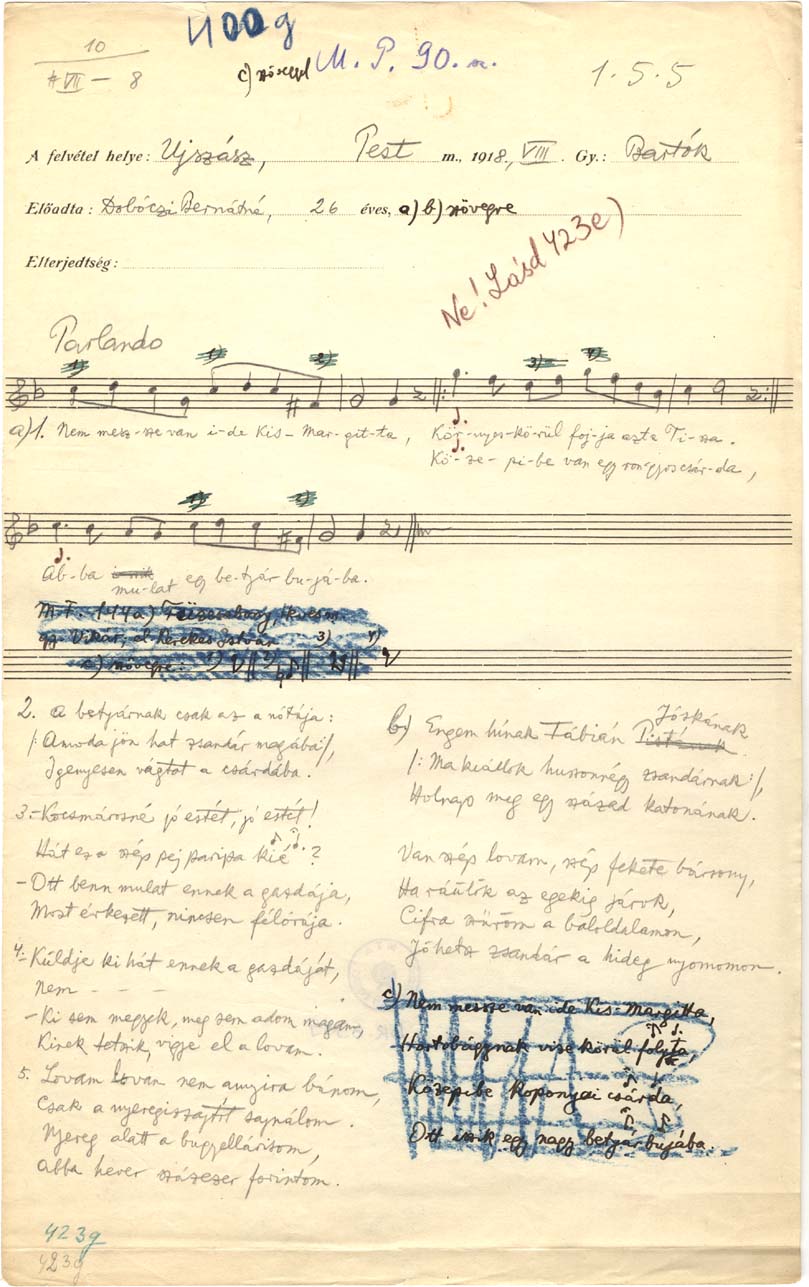 400g
10
VII — 8
c) szöveggel
M. P. 90. a.
1. 5. 5
A felvétel helye: Ujszász, Pest m., 1918, VIII. Gy.: Bartók
Előadta: Dobóczi Bernátné, 26 éves, a) b) szövegre
Elterjedtség:
Ne! Lásd 423e)
Parlando
1) 2) 3) 4)
a) 1. Nem mesz-sze van i-de Kis-Mar-git-ta, Kör-nyes-körül foj-ja azt a Ti-sza.
Kö-ze-pi-be van egy rongyos csár-da,
Ab-ba mu-lat egy be-tyár bu-já-ba.
M.F. 1114a)
gy. Vikár, el. Kerekes István
c) szövegre: 1) 2) 3) 4)
2. A betyárnak csak az a nótája:
/: Amoda jön hat zsandár magába :/,
Igenyesen vágtat a csárdába.
3. – Kocsmárosné jó estét, jó estét!
Hát ez a szép pej paripa kié?
– Ott benn mulat ennek a gazdája,
Most érkezett, nincsen félórája.
4. – Küldje ki hát ennek a gazdáját,
Nem – – – –
– Ki sem megyek, meg sem adom magam,
Kinek tetszik, vigye el a lovam.
5. Lovam lovam nem annyira bánom,
Csak a nyeregiszajtót sajnálom.
Nyereg alatt a bugyellárisom,
Abba hever százezer forintom.
b) Engem hínak Fábián Pistának Jóskának
/: Ma kiállok huszonnégy zsandárnak :/,
Holnap meg egy század katonának.
Van szép lovam, szép fekete bársony,
Ha ráülök az egekig járok,
Cifra szűröm a baloldalamon,
Jöhet a zsandár a hideg nyomomon.
c) Nem messze van ide Kis-Margitta,
Hortobágynak vize körül folyta,
Közepibe koponyai csárda,
Ott iszik egy nagy betyár bujába.
423g
423g